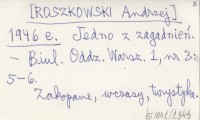 [ROSZKOWSKI Andrzej]
1946 e. Jedno z zagadnień.
– Biul. Oddz. Warsz. 1, nr 3:
5–6.
Zakopane, wczasy, turystyka.